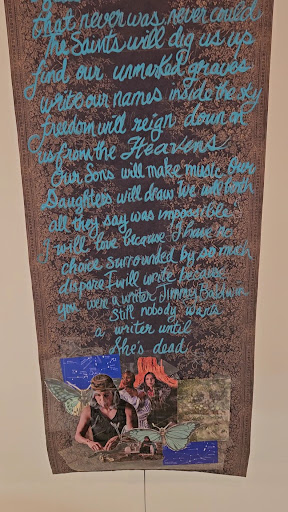 that never was, never could
The Saints will dig us up
find our unmarked graves
write our names inside the sky
freedom will reign down on
us from the Heavens
Our Sons will make music Our
Daughters will draw we will birth
all they say was impossible
I will love because I have no
choice surrounded by so much
dispare I will write because
you were a writer Jimmy Baldwin
Still nobody wants
a writer until
She's dead